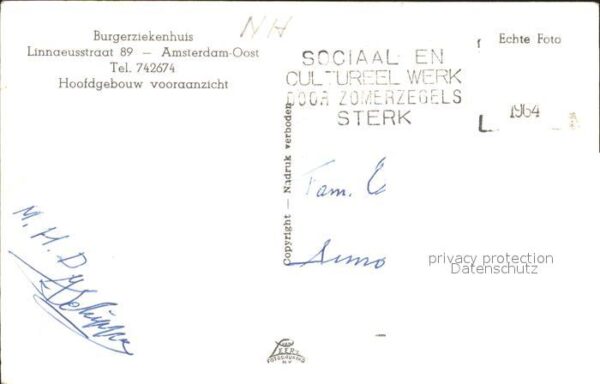 Burgerziekenhuis
Linnaeusstraat 89 — Amsterdam-Oost
Tel. 742674
Hoofdgebouw vooraanzicht
NH
SOCIAAL EN
CULTUREEL WERK
DOOR ZOMERZEGELS
STERK
Echte Foto
1964
Copyright — Nadruk verboden
Fam.
M. H. D.
privacy protection
Datenschutz